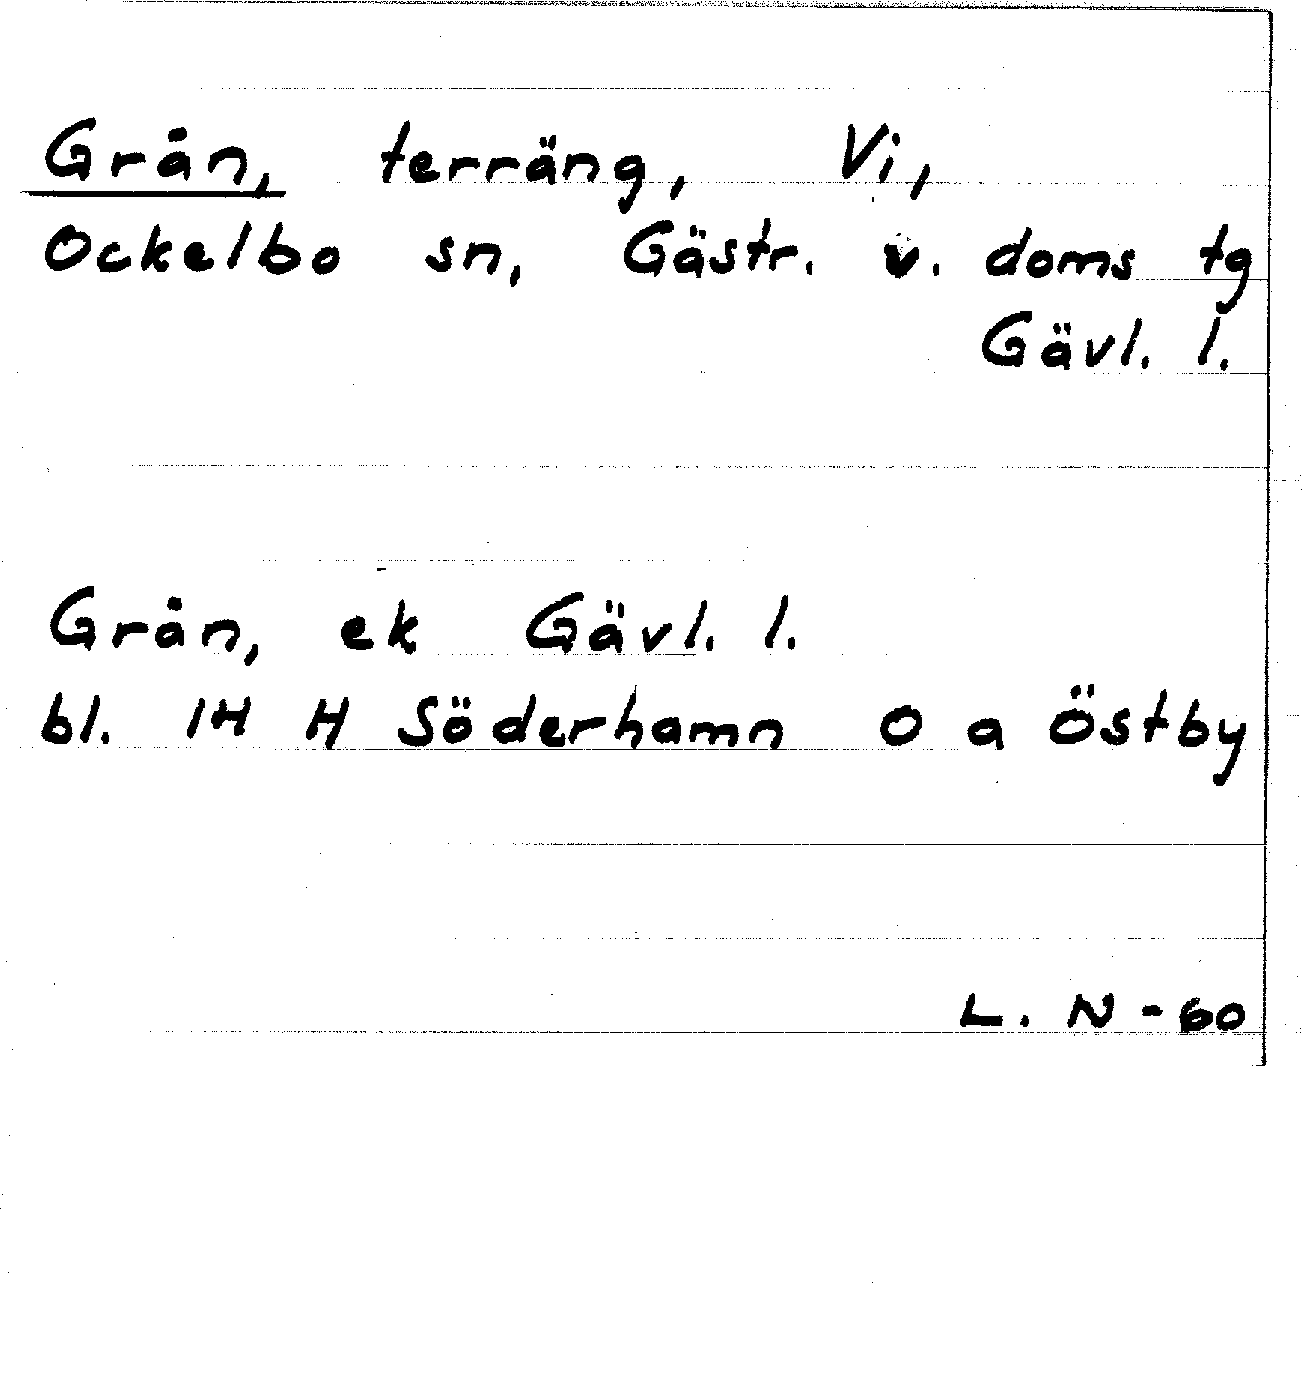 Grån, terräng, Vi,
Ockelbo sn, Gästr. v. doms tg
Gävl. l.
Grån, ek Gävl. l.
bl. 14 H Söderhamn O a Östby
L. N - 60